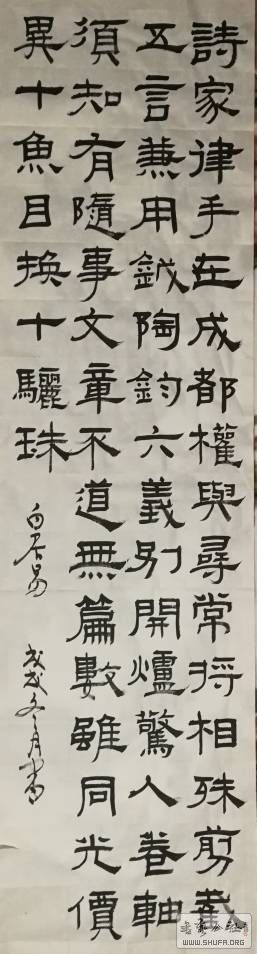 詩家律手在成都權與尋常将相殊剪截
五言兼用鉞陶鈞六義別開爐驚人卷軸
須知有隨事文章不道無篇數雖同光價
異十魚目換十驪珠
白居易 戊戌冬月書
WWW.SHUFA.ORG